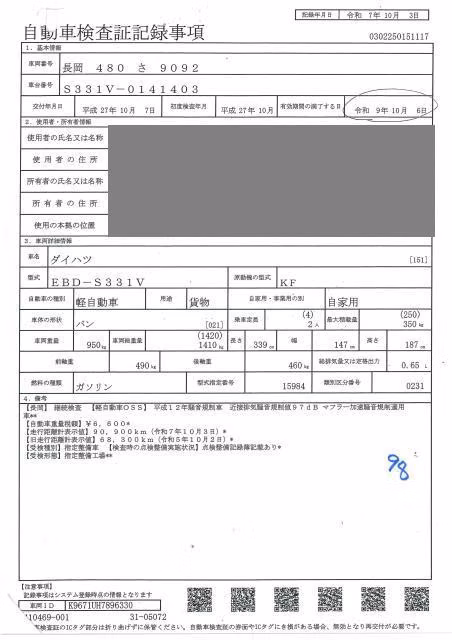 記録年月日 令和 7年10月 3日
自動車検査証記録事項
0302250151117
1．基本情報
車両番号 長岡 480 さ 9092
車台番号 S331V-0141403
交付年月日 平成 27年10月 7日 初度検査年月 平成 27年10月 有効期間の満了する日 令和 9年10月 6日
2．使用者・所有者情報
使用者の氏名又は名称
使用者の住所
所有者の氏名又は名称
所有者の住所
使用の本拠の位置
3．車両詳細情報
車名 ダイハツ [151]
型式 EBD-S331V 原動機の型式 KF
自動車の種別 軽自動車 用途 貨物 自家用・事業用の別 自家用
車体の形状 バン [021] 乗車定員 (4) 2人 最大積載量 (250) 350kg
車両重量 950kg 車両総重量 (1420) 1410kg 長さ 339cm 幅 147cm 高さ 187cm
前軸重 490kg 後軸重 460kg 総排気量又は定格出力 0.65 L
燃料の種類 ガソリン 型式指定番号 15984 類別区分番号 0231
4．備考
【長岡】 継続検査 【軽自動車OSS】 平成12年騒音規制車 近接排気騒音規制値97dB マフラー加速騒音規制適用
車**
【自動車重量税額】￥6,600*
【走行距離計表示値】90,900km（令和7年10月3日）*
【旧走行距離計表示値】68,300km（令和5年10月2日）*
【受検種別】指定整備車 【検査時の点検整備実施状況】点検整備記録簿記載あり*
【受検形態】指定整備工場**
98
【注意事項】
記録事項はシステム登録時点の情報となります
車両ID K9671UH7896330
10469-001 31-05072
車検査証のICタグ部分は折り曲げずに保管ください。自動車検査証の券面やICタグにき損がある場合、無効となり再交付が必要です。